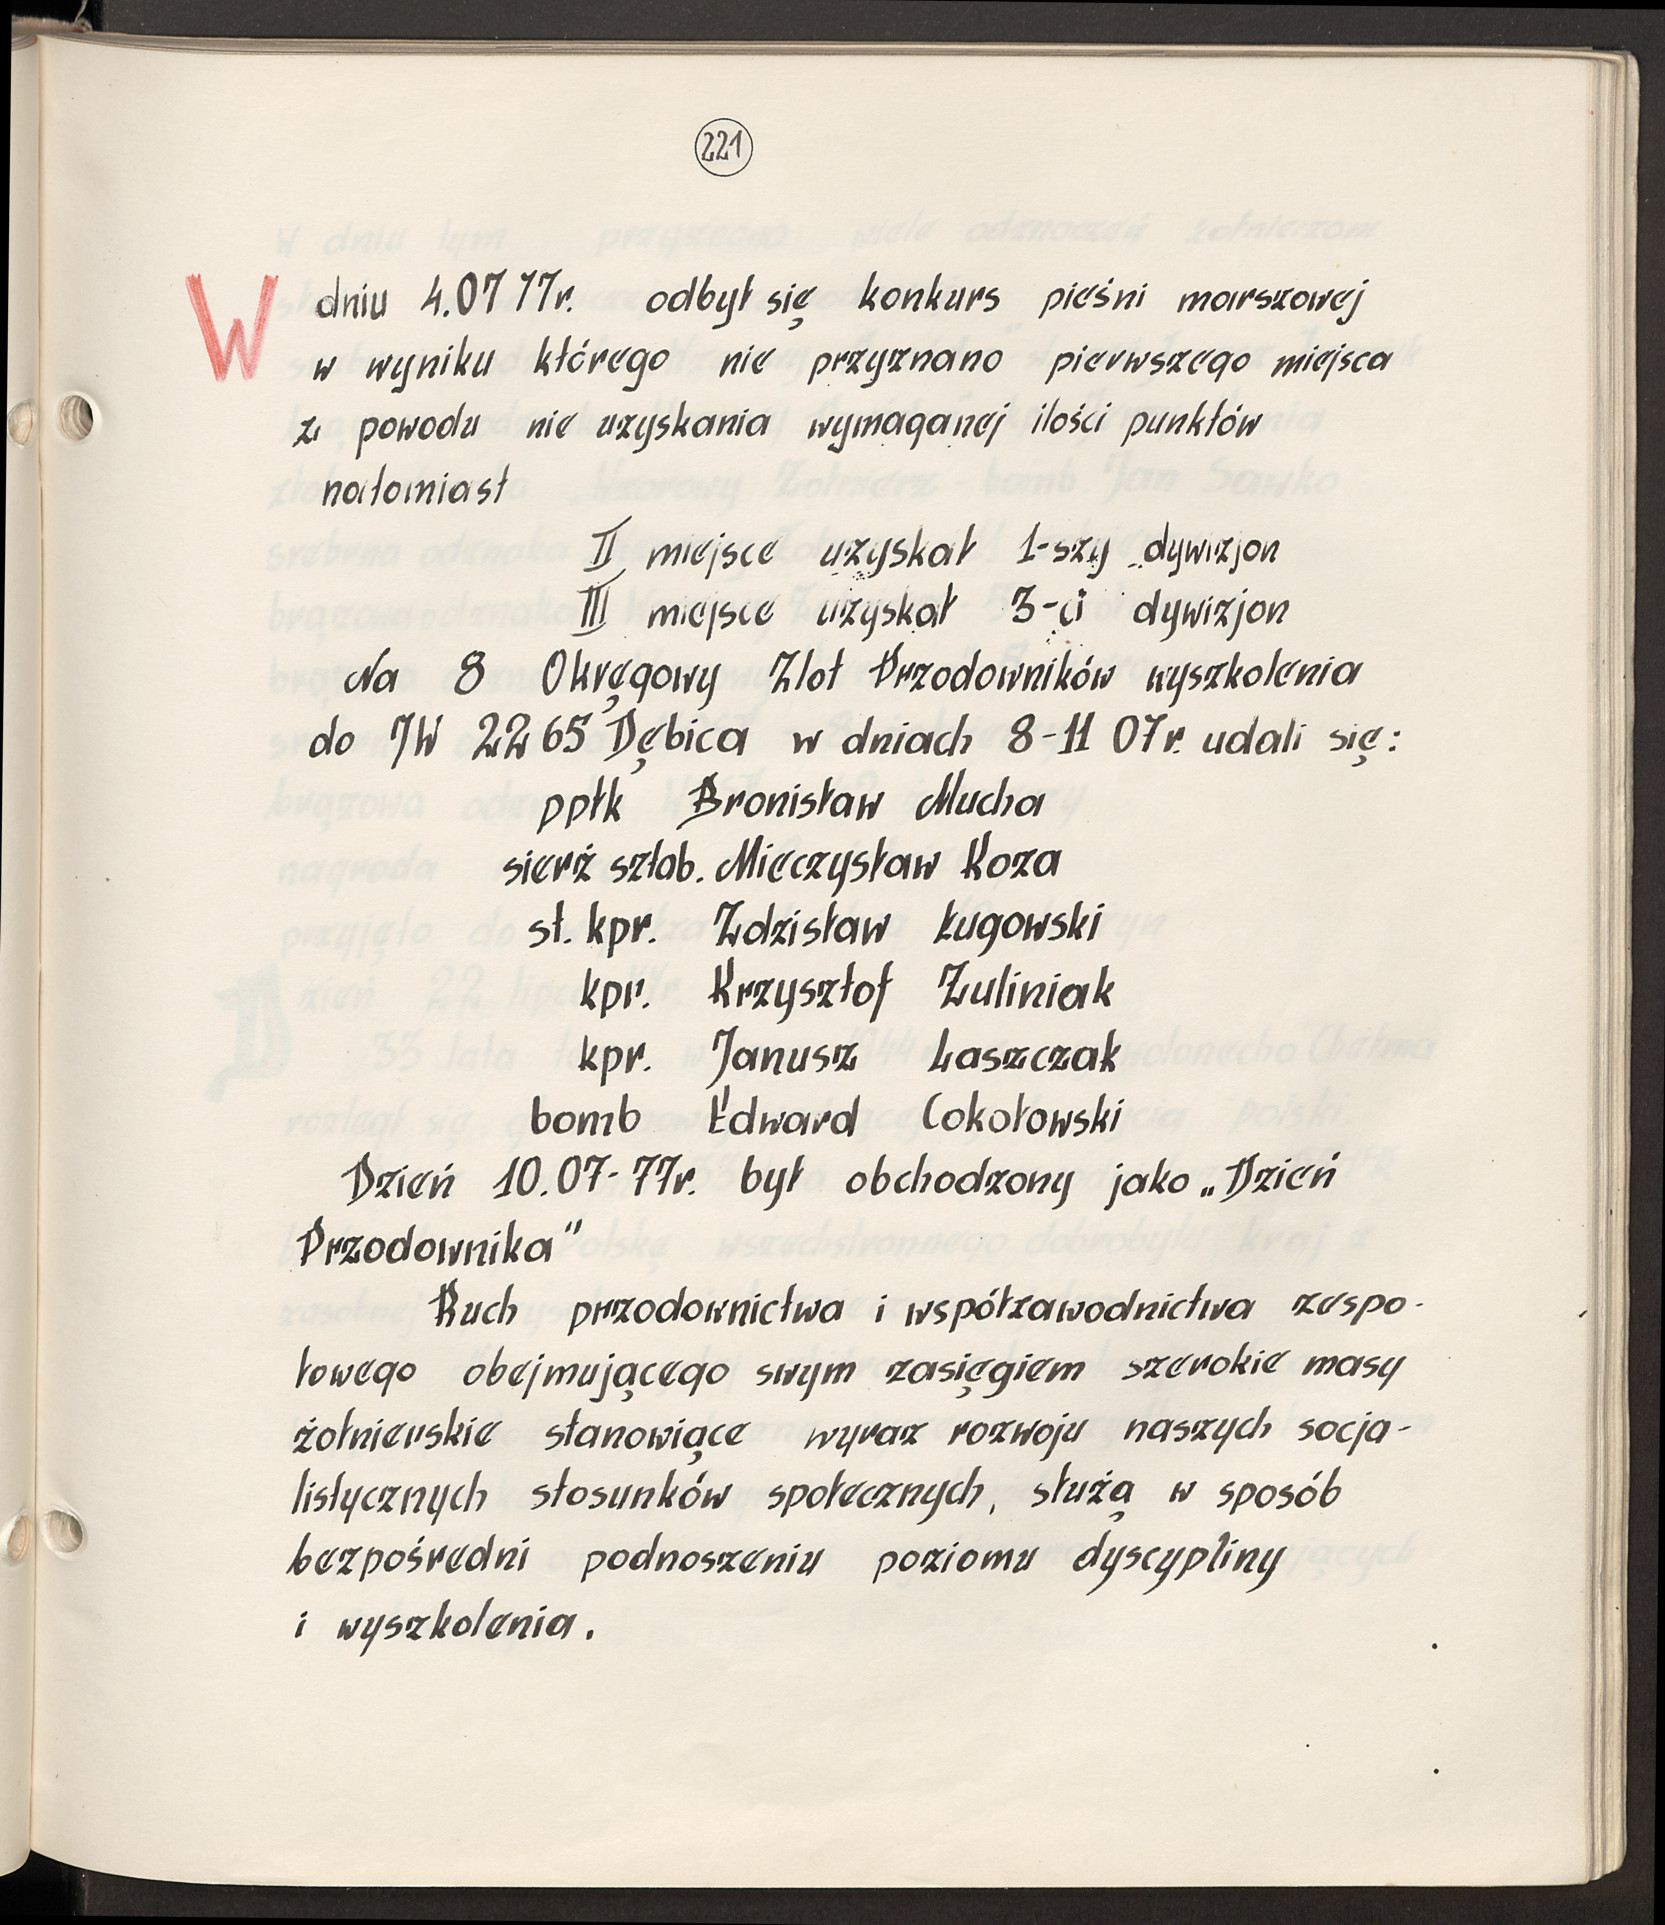 221
W dniu 4.07 77r. odbył się konkurs pieśni marszowej
w wyniku którego nie przyznano pierwszego miejsca
z powodu nie uzyskania wymaganej ilości punktów
natomiast
II miejsce uzyskał 1-szy dywizjon
III miejsce uzyskał 3-ci dywizjon
Na 8 Okręgowy Zlot Przodowników wyszkolenia
do JW 2265 Dębica w dniach 8-11 07r. udali się:
ppłk Bronisław Mucha
sierż sztab. Mieczysław Koza
st. kpr. Zdzisław Ługowski
kpr. Krzysztof Zuliniak
kpr. Janusz Laszczak
bomb Edward Cokołowski
Dzień 10.07-77r. był obchodzony jako „Dzień
Przodownika”
Ruch przodownictwa i współzawodnictwa zespo-
łowego obejmującego swym zasięgiem szerokie masy
żołnierskie stanowiące wyraz rozwoju naszych socja-
listycznych stosunków społecznych, służą w sposób
bezpośredni podnoszeniu poziomu dyscypliny
i wyszkolenia.